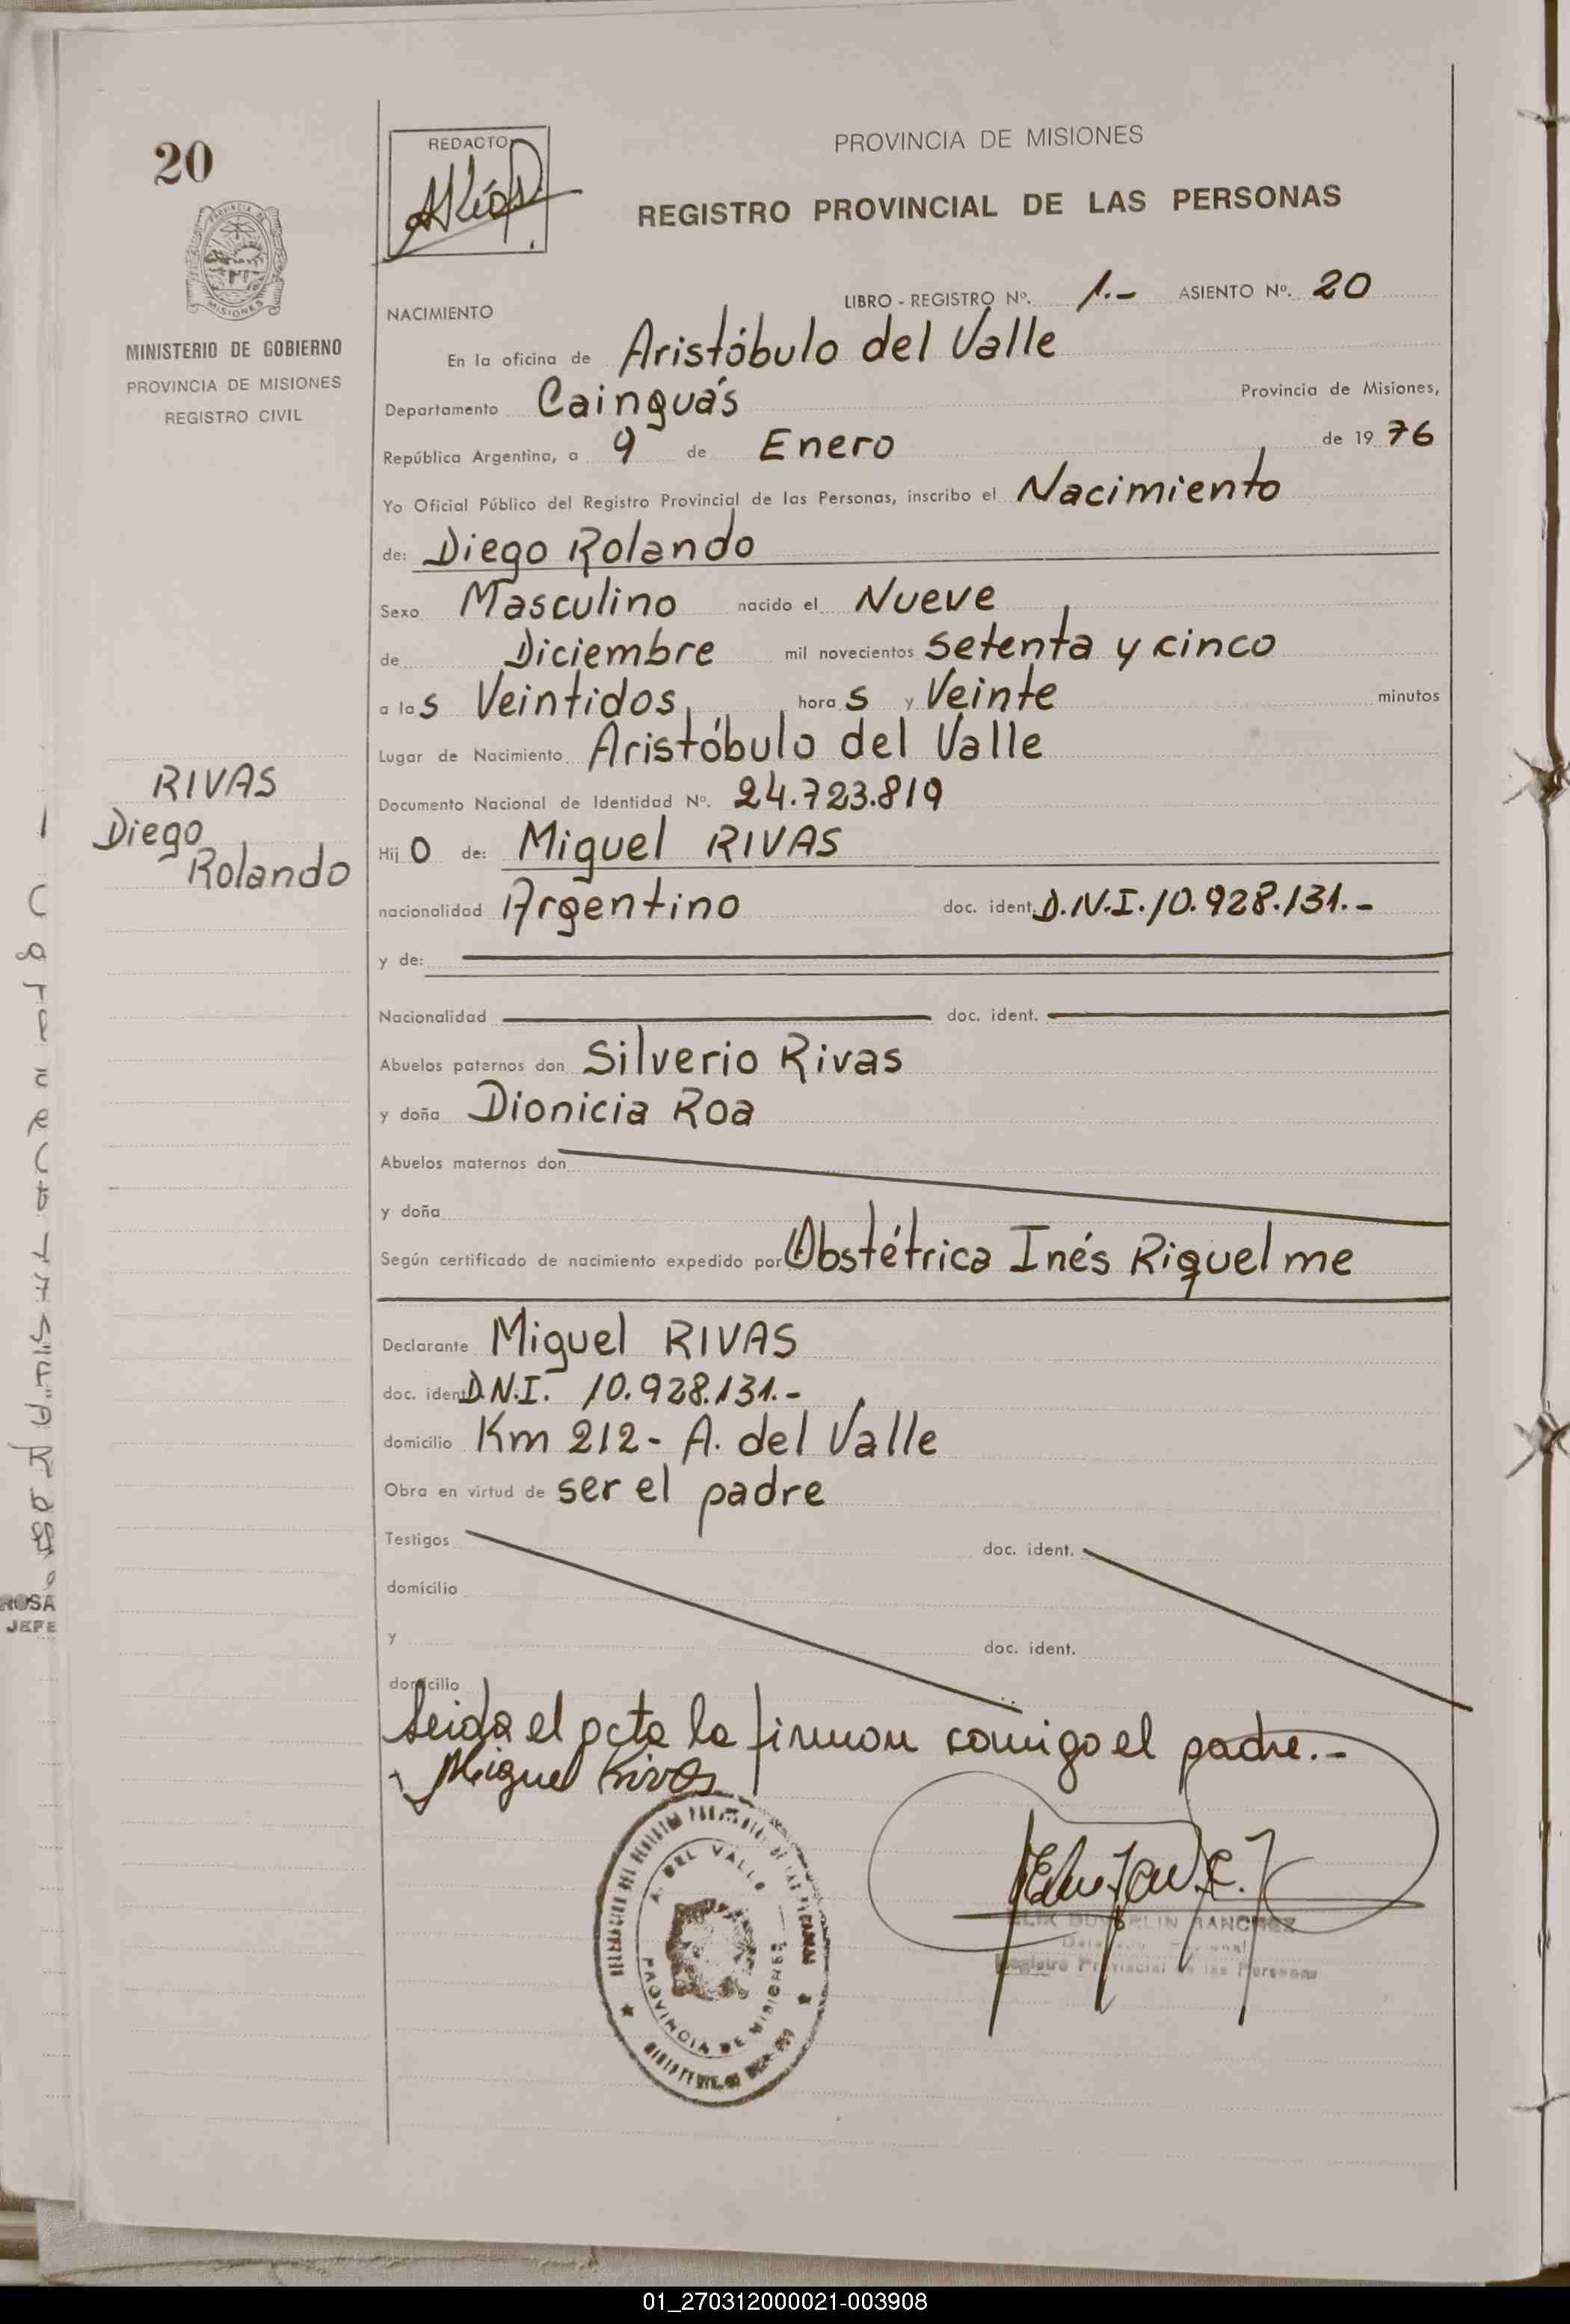 20
REDACTO
PROVINCIA DE MISIONES
REGISTRO PROVINCIAL DE LAS PERSONAS
MINISTERIO DE GOBIERNO
PROVINCIA DE MISIONES
REGISTRO CIVIL
NACIMIENTO LIBRO - REGISTRO Nº. 1.- ASIENTO Nº. 20
En la oficina de Aristóbulo del Valle
Departamento Cainguás Provincia de Misiones,
República Argentina, a 9 de Enero de 19 76
Yo Oficial Público del Registro Provincial de las Personas, inscribo el Nacimiento
de: Diego Rolando
Sexo Masculino nacido el Nueve
de Diciembre mil novecientos setenta y cinco
a las Veintidos horas y Veinte minutos
Lugar de Nacimiento Aristóbulo del Valle
RIVAS
Diego
Rolando
Documento Nacional de Identidad Nº. 24.723.819
Hijo de: Miguel RIVAS
nacionalidad Argentino doc. ident. D.N.I. 10.928.131.-
y de:
Nacionalidad doc. ident.
Abuelos paternos don Silverio Rivas
y doña Dionicia Roa
Abuelos maternos don
y doña
Según certificado de nacimiento expedido por Obstétrica Inés Riquelme
Declarante Miguel RIVAS
doc. ident. D.N.I. 10.928.131.-
domicilio Km 212- A. del Valle
Obra en virtud de ser el padre
Testigos doc. ident.
domicilio
y doc. ident.
domicilio
Leida el acta la firman comigo el padre.-
Miguel Rivas
A. DEL VALLE
PROVINCIA DE MISIONES
SANCHEZ
Registro Provincial de las Personas
ROSA
JEFE
01_270312000021-003908